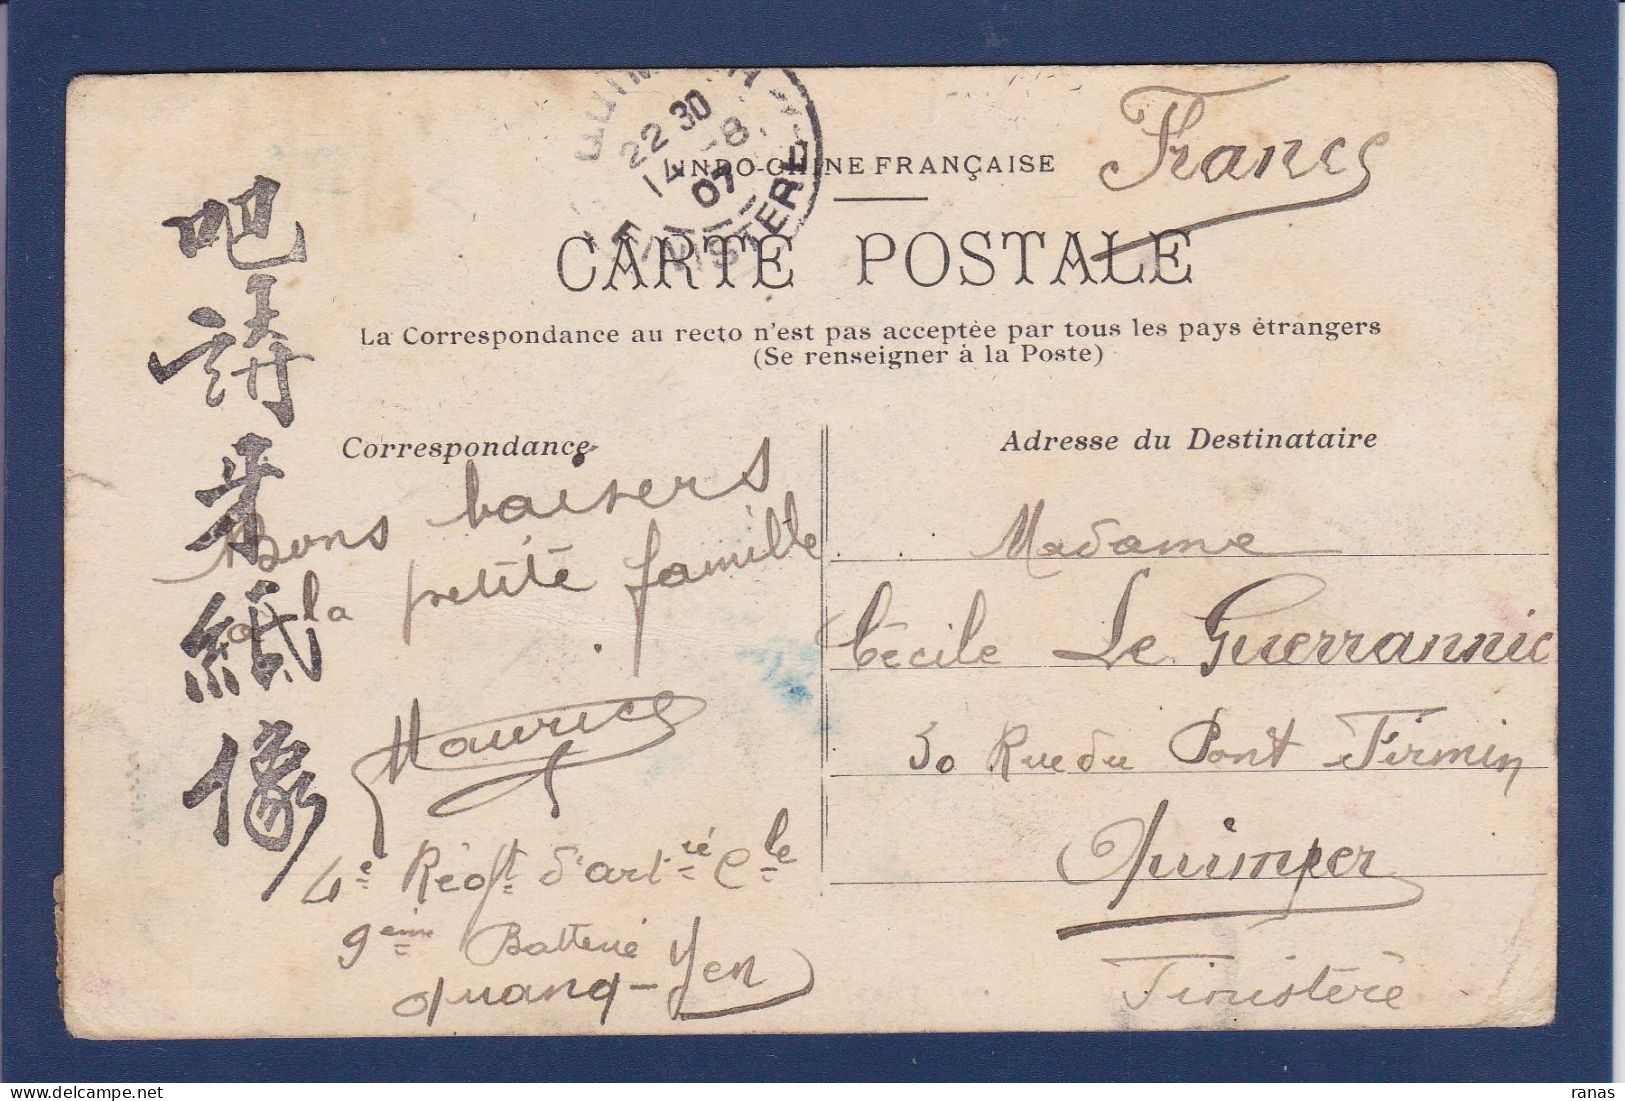 QUIMPER
22 30
14 -8
07
FINISTERE
INDO-CHINE FRANÇAISE
France
CARTE POSTALE
La Correspondance au recto n'est pas acceptée par tous les pays étrangers
(Se renseigner à la Poste)
吧講牙紙像
Correspondance
Bons baisers
a la petite famille.
Maurice
4e Régt d'artie Cle
9eme Batterie
Quang-Yen
Adresse du Destinataire
Madame
Cécile Le Guerrannic
30 Rue du Pont Firmin
Quimper
Finistère
ranas